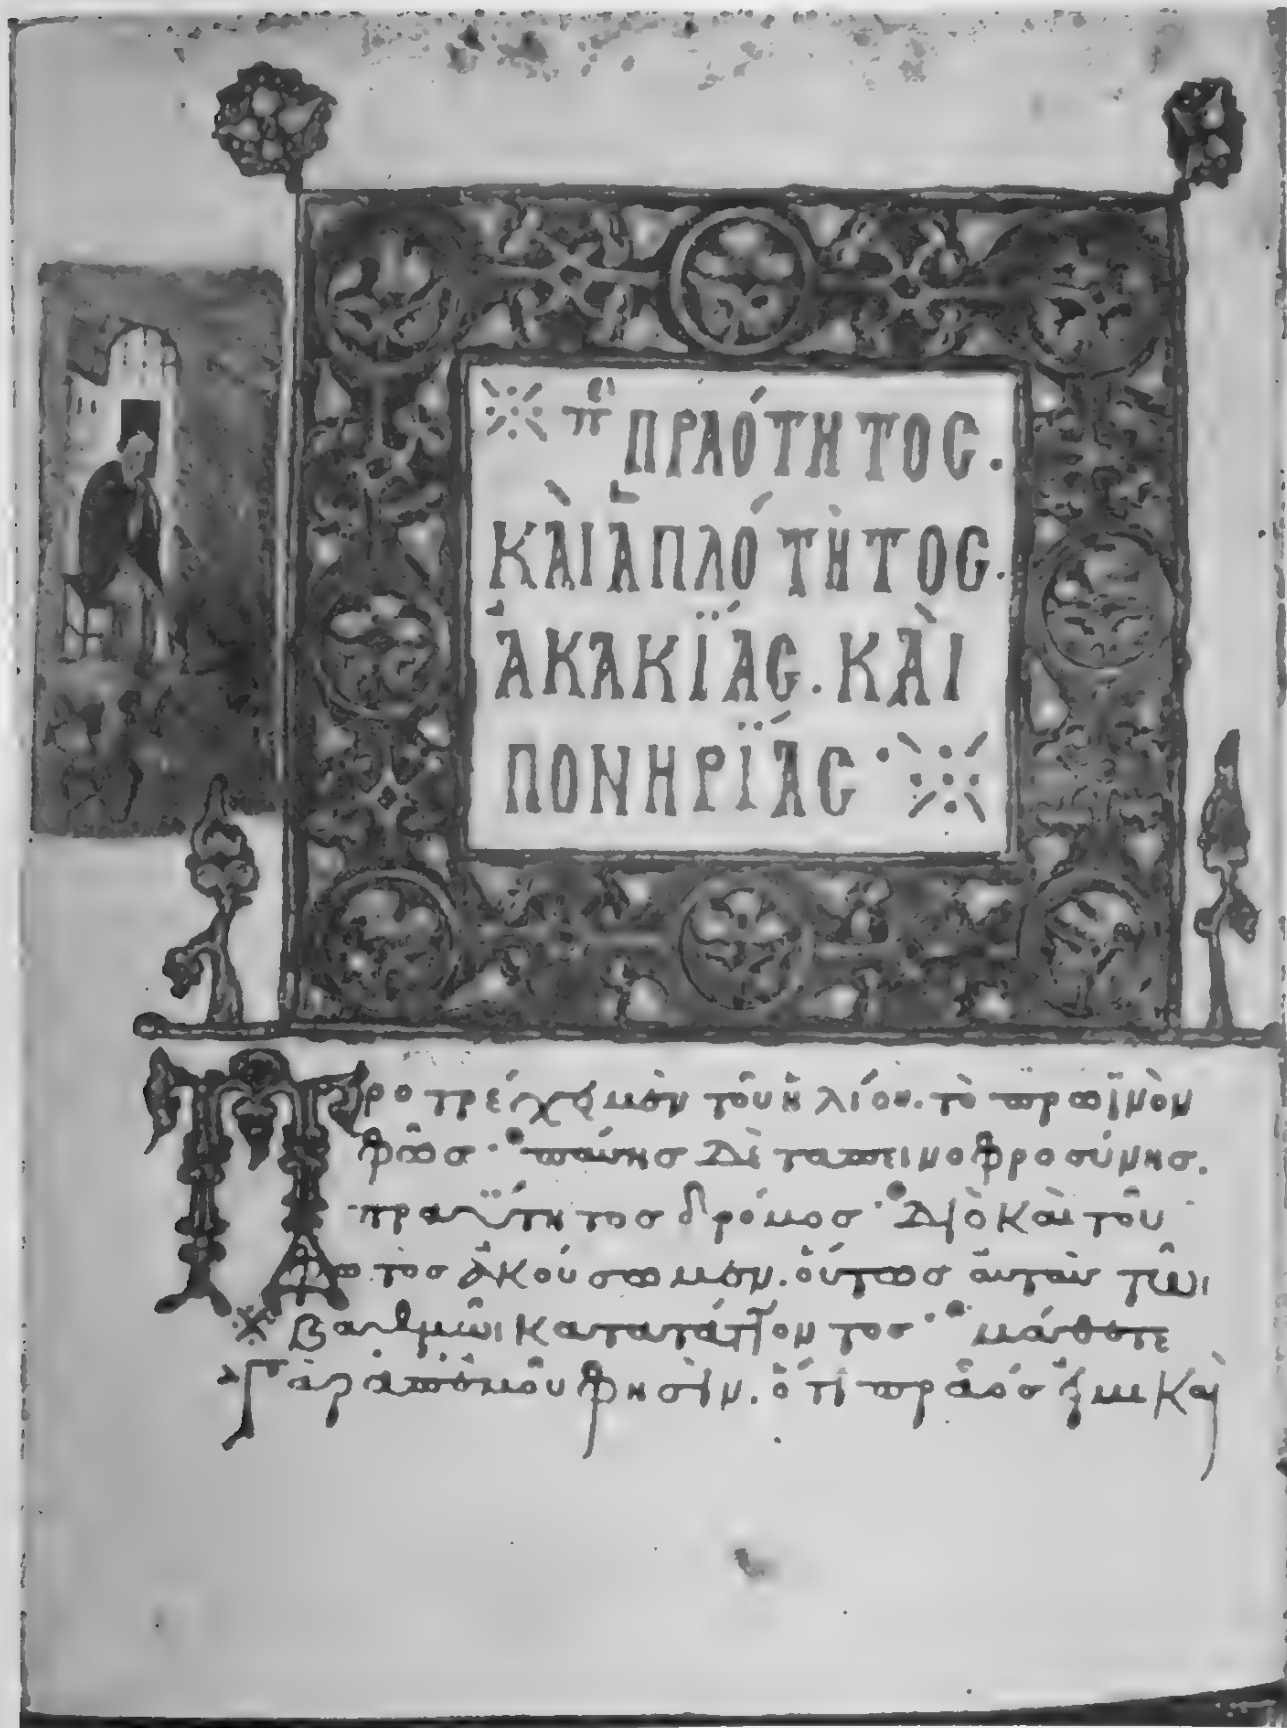 πε ΠΡΑΌΤΗΤΟC.
ΚΑῚ ἉΠΛΌΤΗΤΟC.
ἈΚΑΚΪ́ΑC. ΚΑῚ
ΠΟΝΗΡΪ́ΑC·
Προτρέχει μὲν τοῦ ἡλίου. τὸ πρωϊνὸν
φῶσ· πάσησ δὲ ταπεινοφροσύνησ.
πραΰτητοσ δρόμοσ· Διὸ καὶ τοῦ
φωτὸσ ἀκούσωμεν. οὕτωσ αὐτὰσ τῶι
βαθμῶι κατατάττοντοσ· μάθετε
γὰρ ἀπ' ἐμοῦ φησίν. ὅτι πρᾶόσ εἰμι καὶ